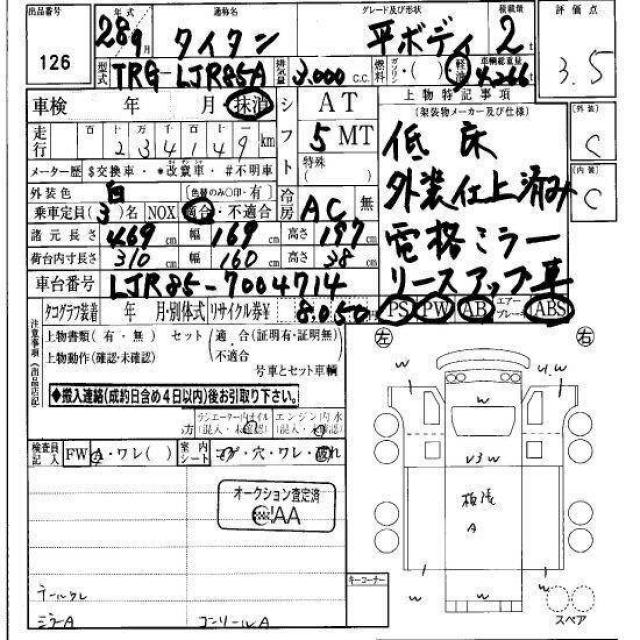 出品番号 年式 通称名 グレード及び形状 積載量 評価点
126 28年 9月 タイタン 平ボディ 2t 3.5
型式 TRG-LJR85A 排気量 3,000 C.C. 燃料 ガソリン・( )・軽油 車輌総重量 4,266t
車検 年 月 抹消 シフト AT 上物特記事項
(架装物メーカー及び仕様) [外装] C
走行 百 十 万 千 百 十 234149km 5MT 低床
特殊( )
メーター歴 $交換車・*改竄車・#不明車 外装仕上済み [内装] C
外装色 白 (色替のみ○印・有) 冷房 AC 無
乗車定員(3)名 NOX 適合・不適合
諸元長さ 469cm 幅 169cm 高さ 197cm 電格ミラー
荷台内寸長さ 310cm 幅 160cm 高さ 38cm
車台番号 LJR85-7004714 リースアップ車
タコグラフ装着 年 月・別体式 リサイクル券¥ 8,050円 PS PW AB エアーブレーキ ABS
注意事項(出品店記) 上物書類(有・無) セット(適合(証明有・証明無)・不適合 左 右
上物動作(確認・未確認) 号車とセット車輌
◆搬入連絡(成約日含め4日以内)後お引取り下さい。
ラジエーター内オイル エンジン内水
方 (混入・未確認) (混入・未確認)
検査員記入 FW A・ワレ( ) 室内シート コゲ・穴・ワレ・破れ
オークション査定済
CIAA
W
W
W
U3W
A
W
W
キーコーナー
スペア
ミラーA